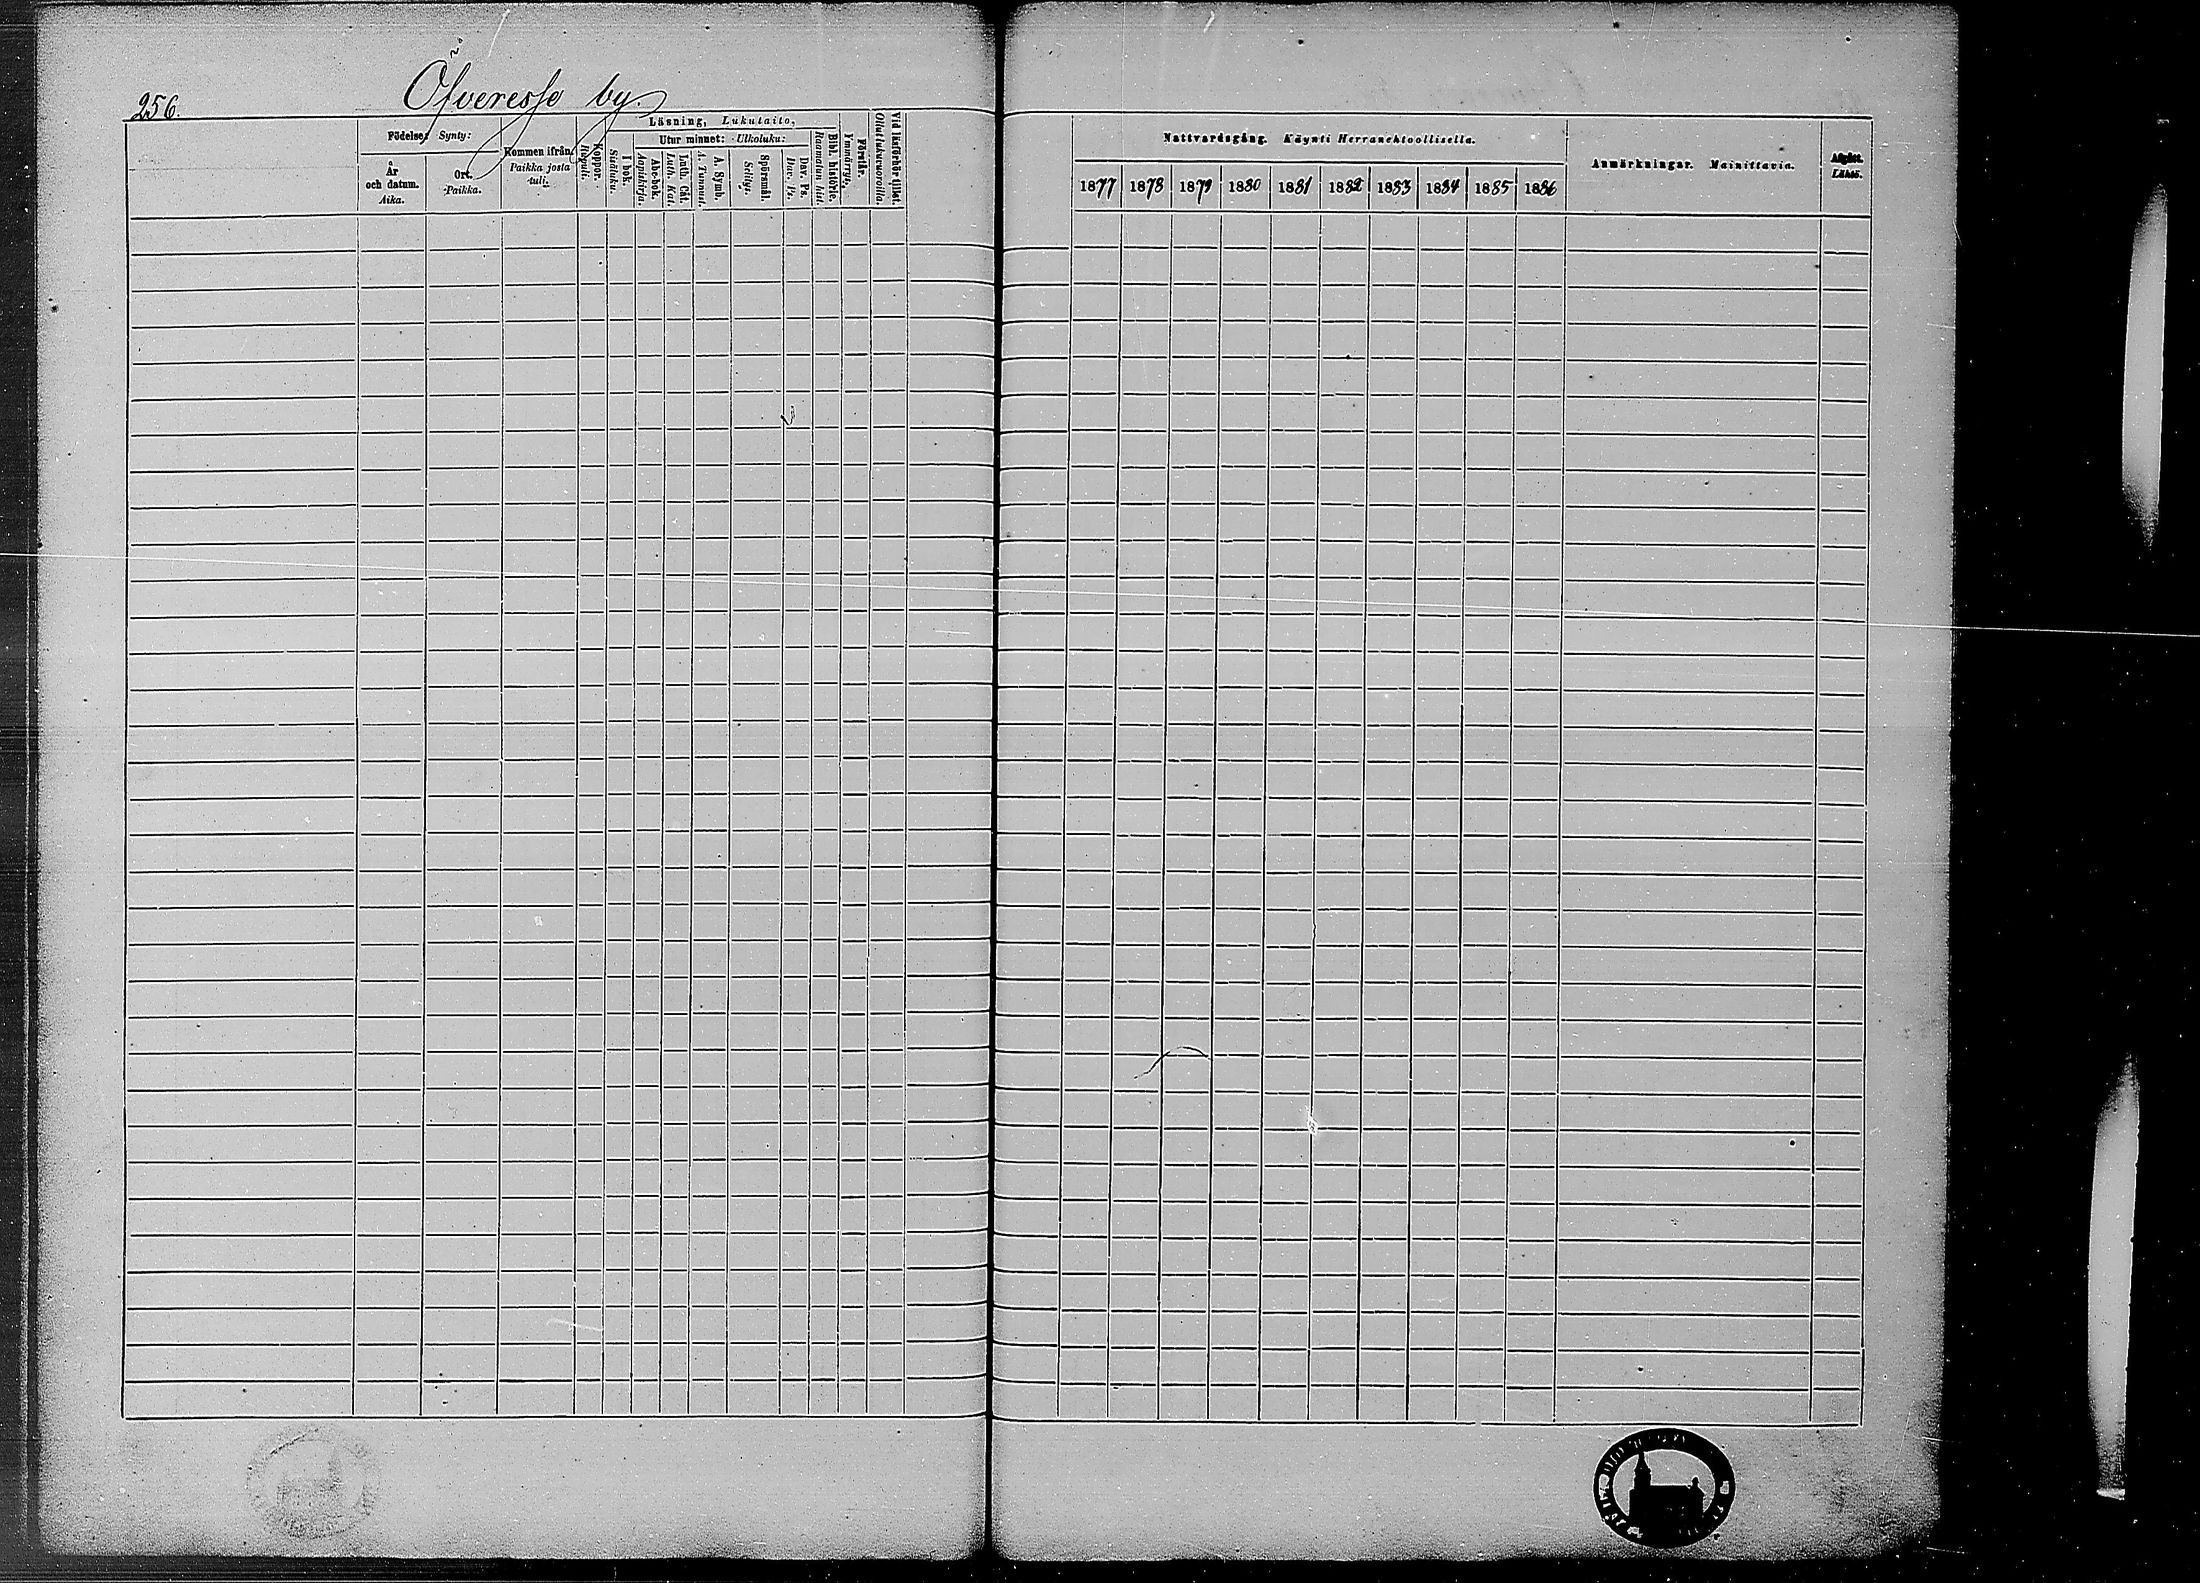 256.
Öfveresse by.
Födelse: Synty:
År och datum. Aika.
Ort. Paikka.
Kommen ifrån. Paikka josta tuli.
Läsning, Lukutaito,
Koppor. Rupuli.
I bok. Sisäluku.
Utur minnet: Ulkoluku:
Abc-bok. Aapiskirja.
Luth. Cat. Luth. Kat.
A. Symb. A. Tunnust.
Spörsmål. Selitys.
Dav. Ps. Dav. Ps.
Bibl. historie. Raamatun hist.
Förstår. Ymmärrys.
Vid läsförhör tillst. Ollut lukuvuoroilla.
Nattvardsgång. Käynti Herranehtoollisella.
1877 1878 1879 1880 1881 1882 1883 1884 1885 1886
Anmärkningar. Mainittavia.
Afgått. Lähtö.